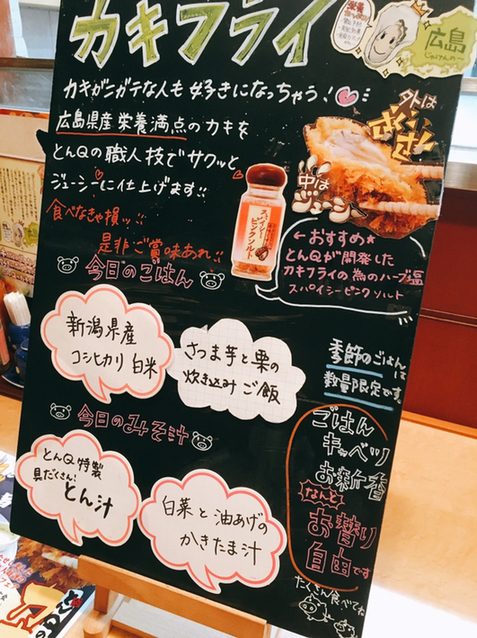 カキフライ
広島
カキがニガテな人も好きになっちゃう!
広島県産栄養満点のカキを
とんQの職人技でサクッと
ジューシーに仕上げます!!
食べなきゃ損ッ!!
是非ご賞味あれ!!
外は
さくさく
中は
ジューシー
スパイシー
ピンクソルト
←おすすめ★
とんQが開発した
カキフライの為のハーブ塩
スパイシーピンクソルト
今日のごはん
新潟県産
コシヒカリ白米
さつま芋と栗の
炊き込みご飯
季節のごはんは
数量限定です。
今日のみそ汁
とんQ特製
具だくさん!
とん汁
白菜と油あげの
かきたま汁
ごはん
キャベツ
お新香
なんと!
お替り
自由です
たくさん食べてね